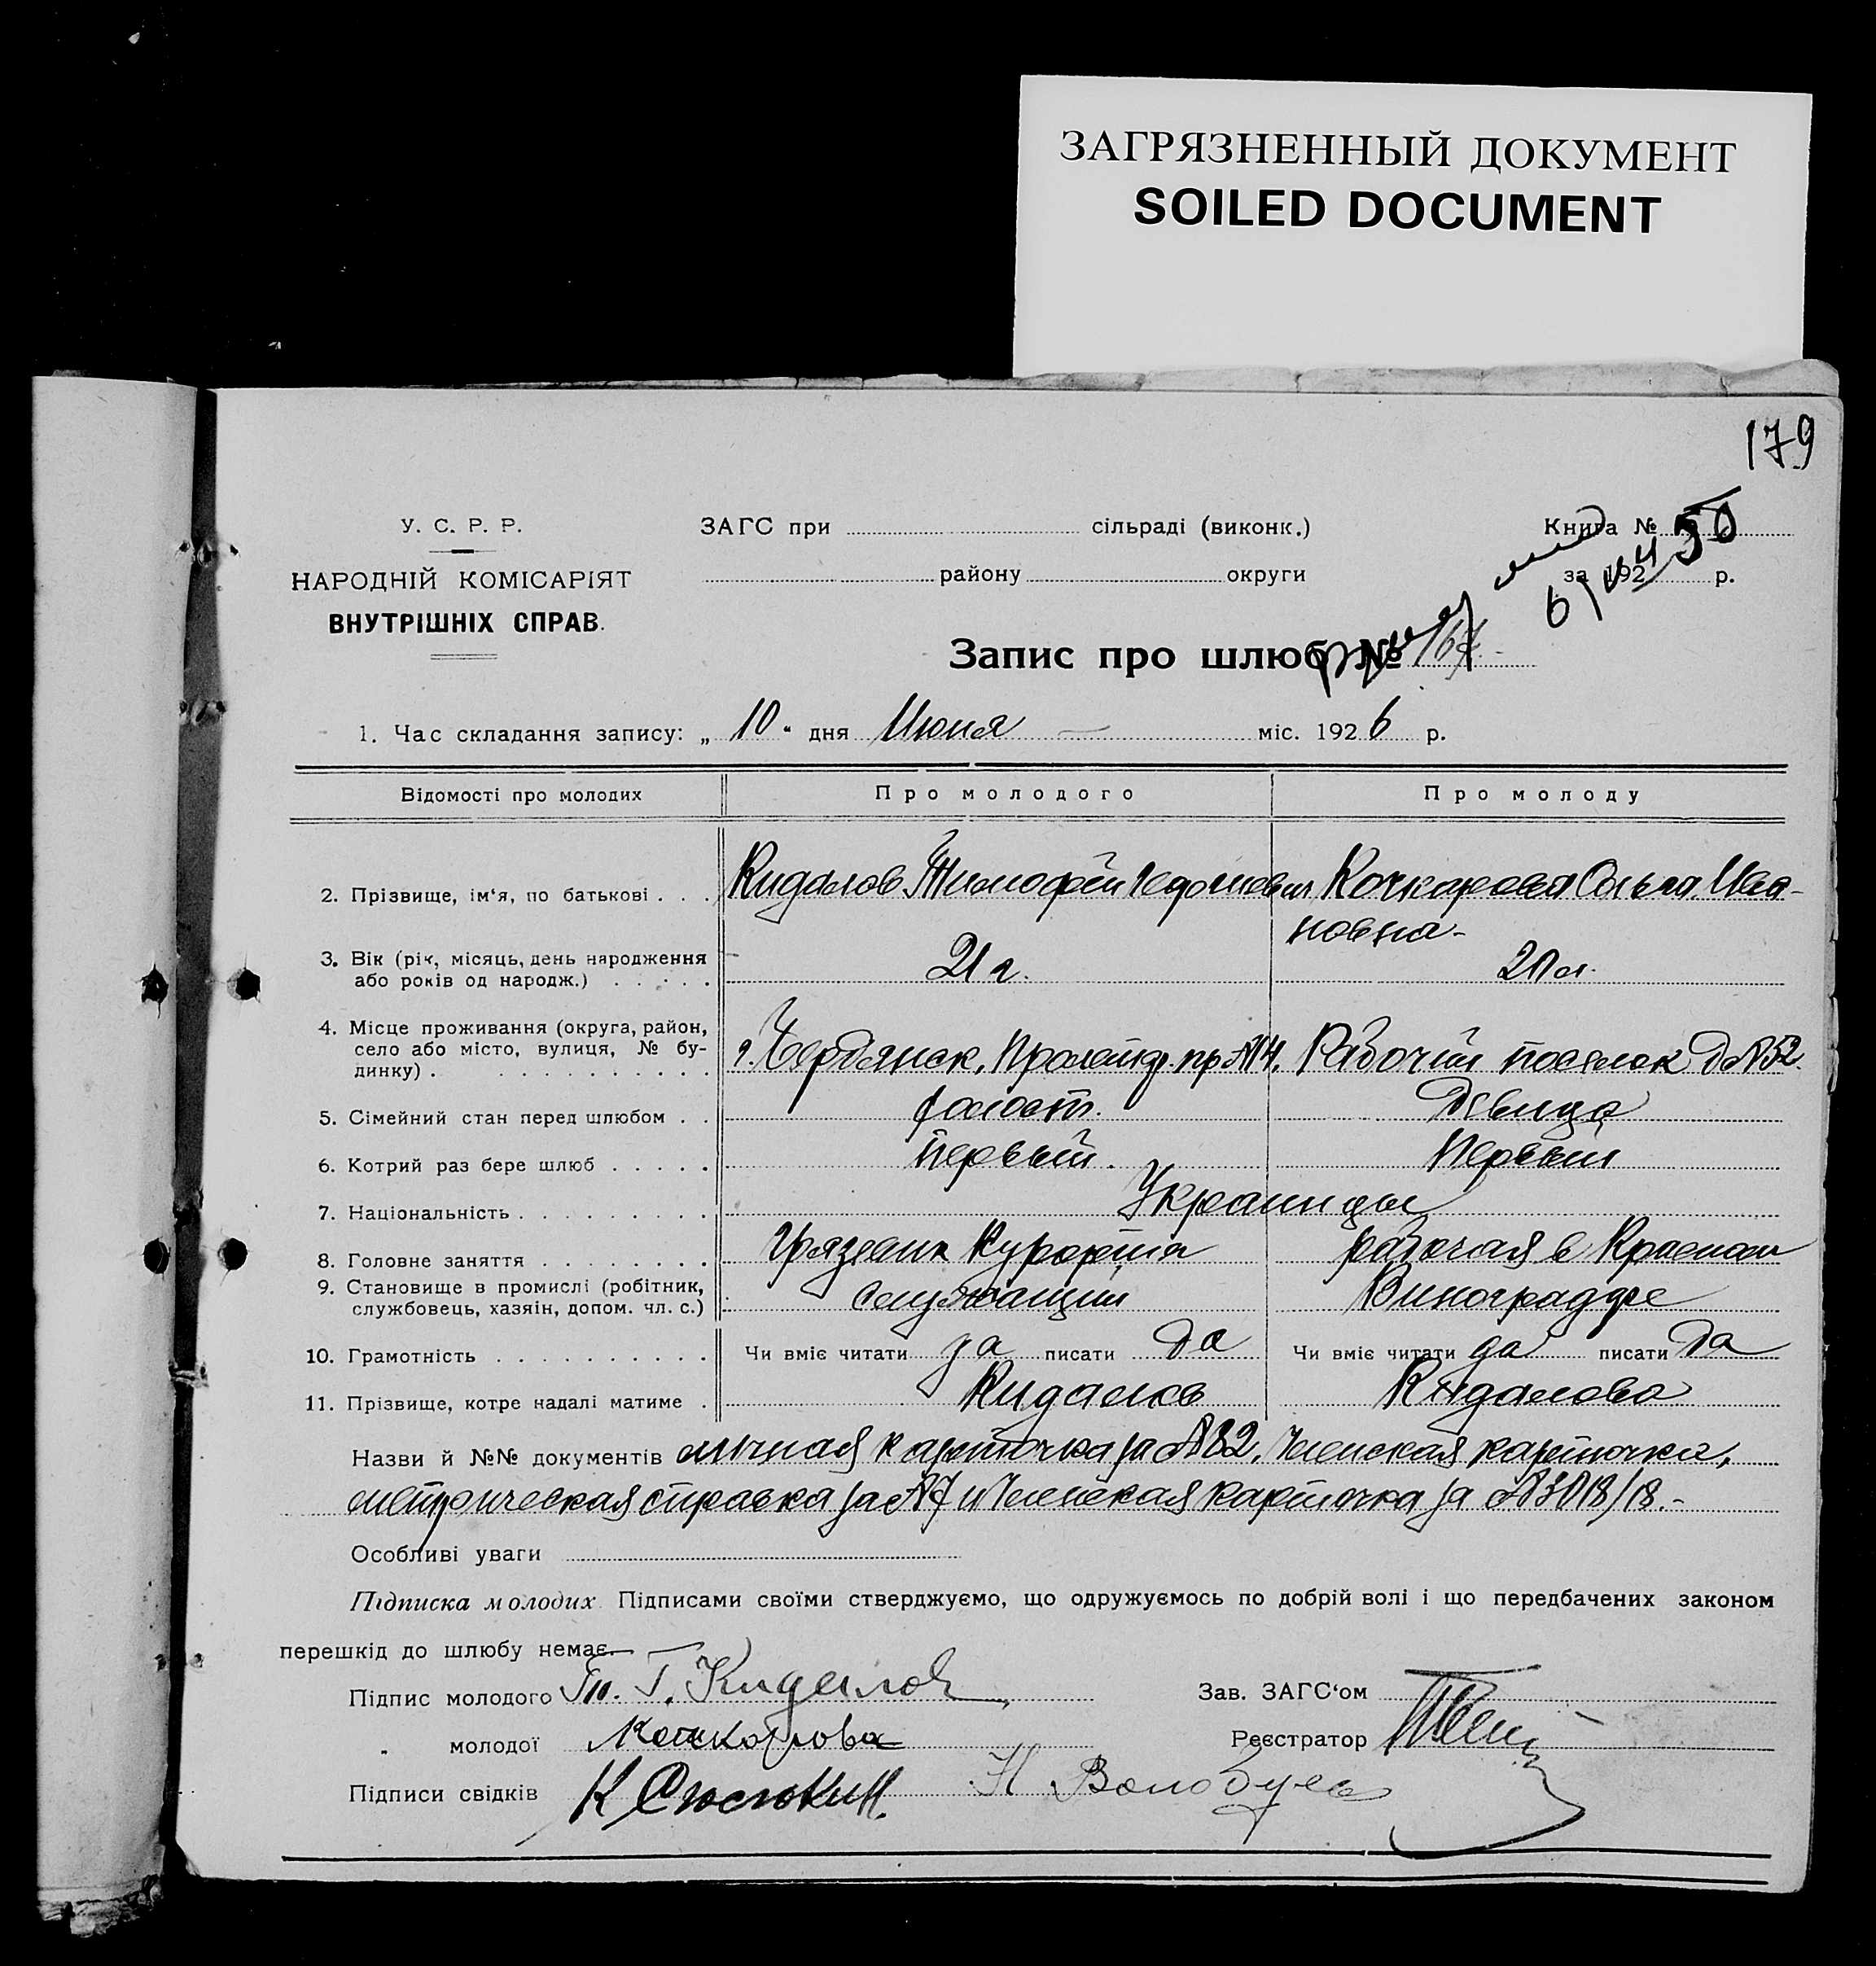 ЗАГРЯЗНЕННЫЙ ДОКУМЕНТ
SOILED DOCUMENT
179
У. С. Р. Р.
НАРОДНІЙ КОМІСАРІЯТ
ВНУТРІШНІХ СПРАВ.
ЗАГС при сільраді (виконк.)
району округи
Книга №
за 192 р.
Запис про шлюб № 167
1. Час складання запису: „ 10 “ дня Июня міс. 192 6 р.
Відомості про молодих Про молодого Про молоду
2. Прізвище, ім‘я, по батькові . . . Кидалов Тимофей Кочкарова Ольга Ива-
новна-
3. Вік (рік, місяць, день народження
або років од народж.) . . . . . 21 г. 20 л.
4. Місце проживання (округа, район,
село або місто, вулиця, № бу-
динку) . . . . . . . . . . г. Бердянск, Пролетар. пр №14. Рабочий поселок д №52.
5. Сімейний стан перед шлюбом . . холост. Девица
6. Котрий раз бере шлюб . . . . . Первый. Первый
7. Національність . . . . . . . . . Украинцы
8. Головне заняття . . . . . . . . Курорта рабочая в Красном
9. Становище в промислі (робітник,
службовець, хазяїн, допом. чл. с.) Служащий Виноградаре
10. Грамотність . . . . . . . . . . Чи вміє читати да писати да Чи вміє читати да писати да
11. Прізвище, котре надалі матиме . Кидалов Кидалова
Назви й №№ документів личная карточка за №82, Членская карточка,
метрическая справка за №7 и Членская карточка за №3018/18.-
Особливі уваги
Підписка молодих Підписами своїми стверджуємо, що одружуємось по добрій волі і що передбачених законом
перешкід до шлюбу немає.
Підпис молодого Т. Г. Кидалов Зав. ЗАГС‘ом
„ молодої Кочкарова Реєстратор
Підписи свідків К Сюсюкин. Н Волобуев